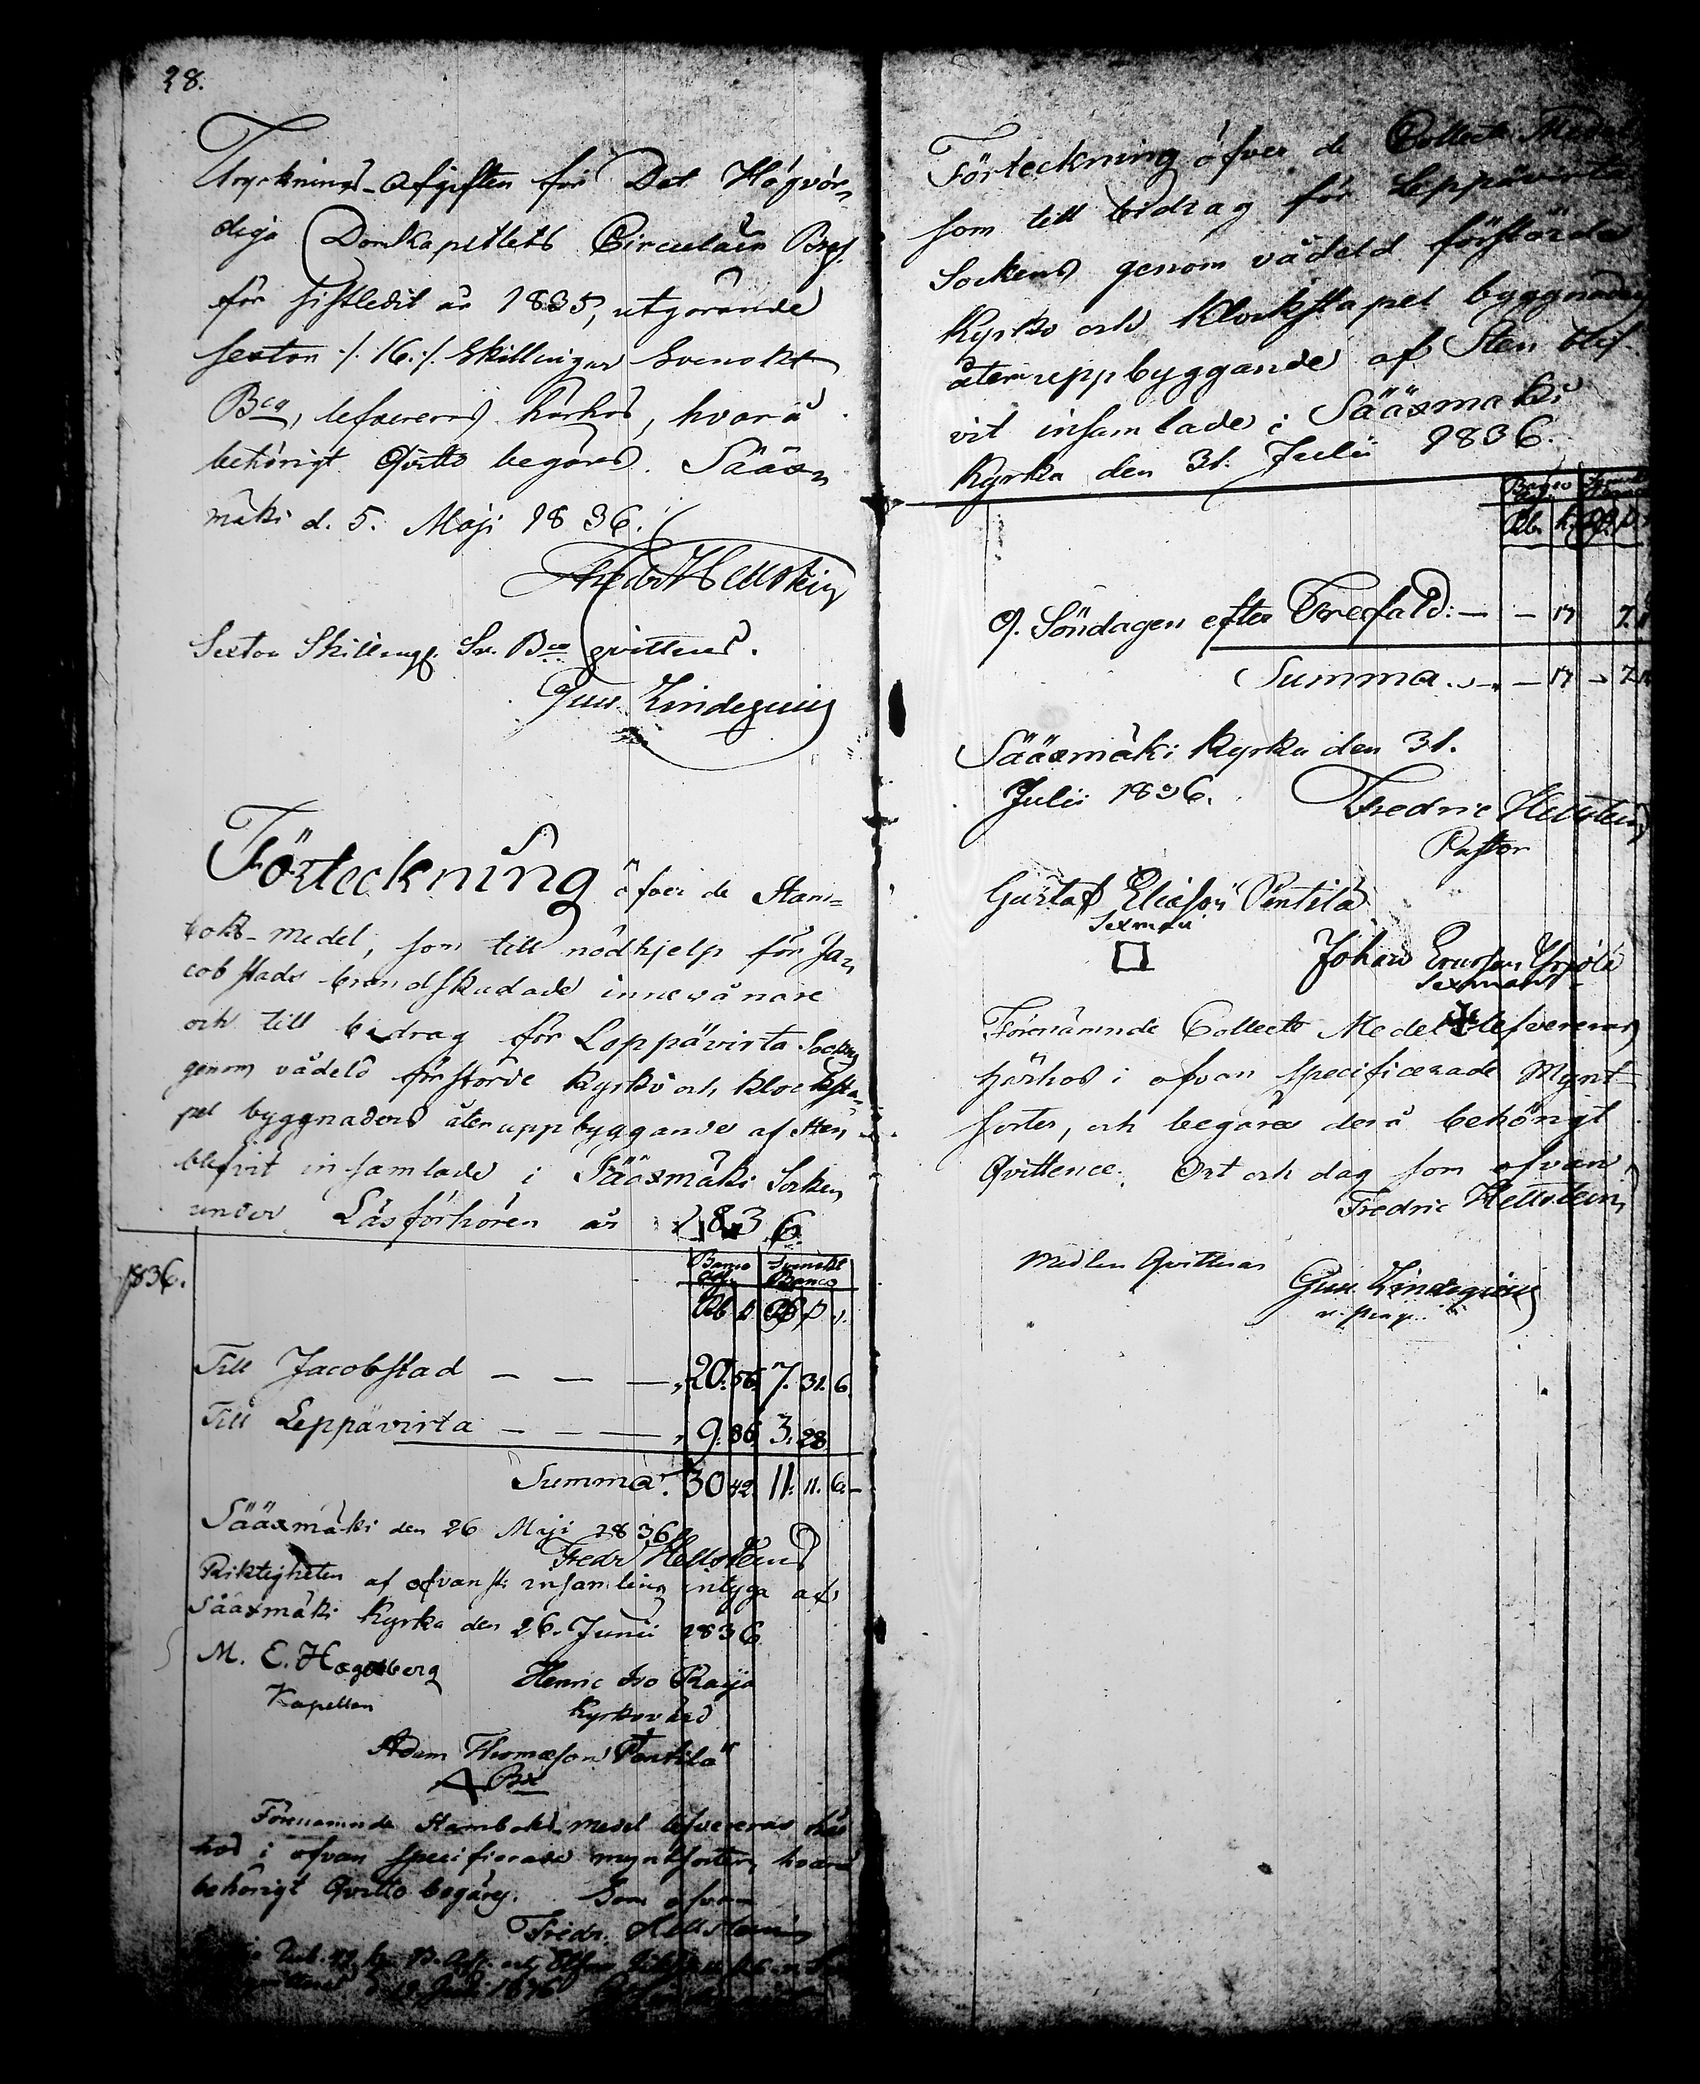 28.
Trycknings-Afgiften för Det Högvör-
diga DomKapitlets Circulair Bref
för sistledit år 1835, utgörande
sexton ./. 16. /. Skillingar Svenskt
Bco, lefvereras härhos, hvarå
behörigt Qvitto begäres. Sääx-
mäki d. 5. Maji 1836.
Fredr Hellstein
Sexton Skilling Sv. Bco qvitteras.
Gust.
Förteckning öfver de Stam-
boks-medel, som till nödhjelp för Ja-
cobstads brandskadade innevånare
och till bidrag för Leppävirta Sockens
genom vådeld förstörde Kyrko och Klocksta-
pel byggnaders återuppbyggande af Sten
blefvit insamlade i Sääxmäki Socken
under Läsförhören år 1836
1836.
Banco Ass. Svenskt Banco
Rb k Rd s r.
Till Jacobstad — — — 20. 56. 7. 31. 6.
Till Leppävirta — — — 9. 86. 3. 28.
Summa. 30 42. 11. 11. 6.—
Sääxmäki den 26 Maji 1836
Fredr Hellstein
Riktigheten af ofvanst. insamling intyga af
Sääxmäki Kyrka den 26. Junii 1836
M. E. Hagelberg
Kapellan
Henric Raija
Kyrkovärd
Adam Thomasson Pentilä
Förenämnde Stamboks-medel lefvereras här
hos i ofvan specificerade myntsorter, hvarå
behörigt Qvitto begäres. Som ofvan
Fredr. Hellstein
Förteckning öfver de Collect Medel
som till bidrag för Leppävirta
Sockens genom vådeld förstörde
Kyrko och Klockstapel byggnaders
återuppbyggande af Sten blif-
vit insamlade i Sääxmäki
Kyrka den 31. Julii 1836.
Banco Ass.
Rb. k.
9. Söndagen efter Trefald: — — 17 7.
Summa. — 17 7.
Sääxmäki Kyrka den 31.
Julii 1836.
Fredric Hellstein
Pastor
Gustaf Eliasson Pentilä
Sexman
Johan Ersson
Sexman
Förenämnde Collect Medel lefvereras
härhos i ofvan specificerade Mynt-
sorter, och begäres derå behörigt
Qvittence. Ort och dag som ofvan,
Fredric Hellstein
Medlen Qvitteras
Gust.